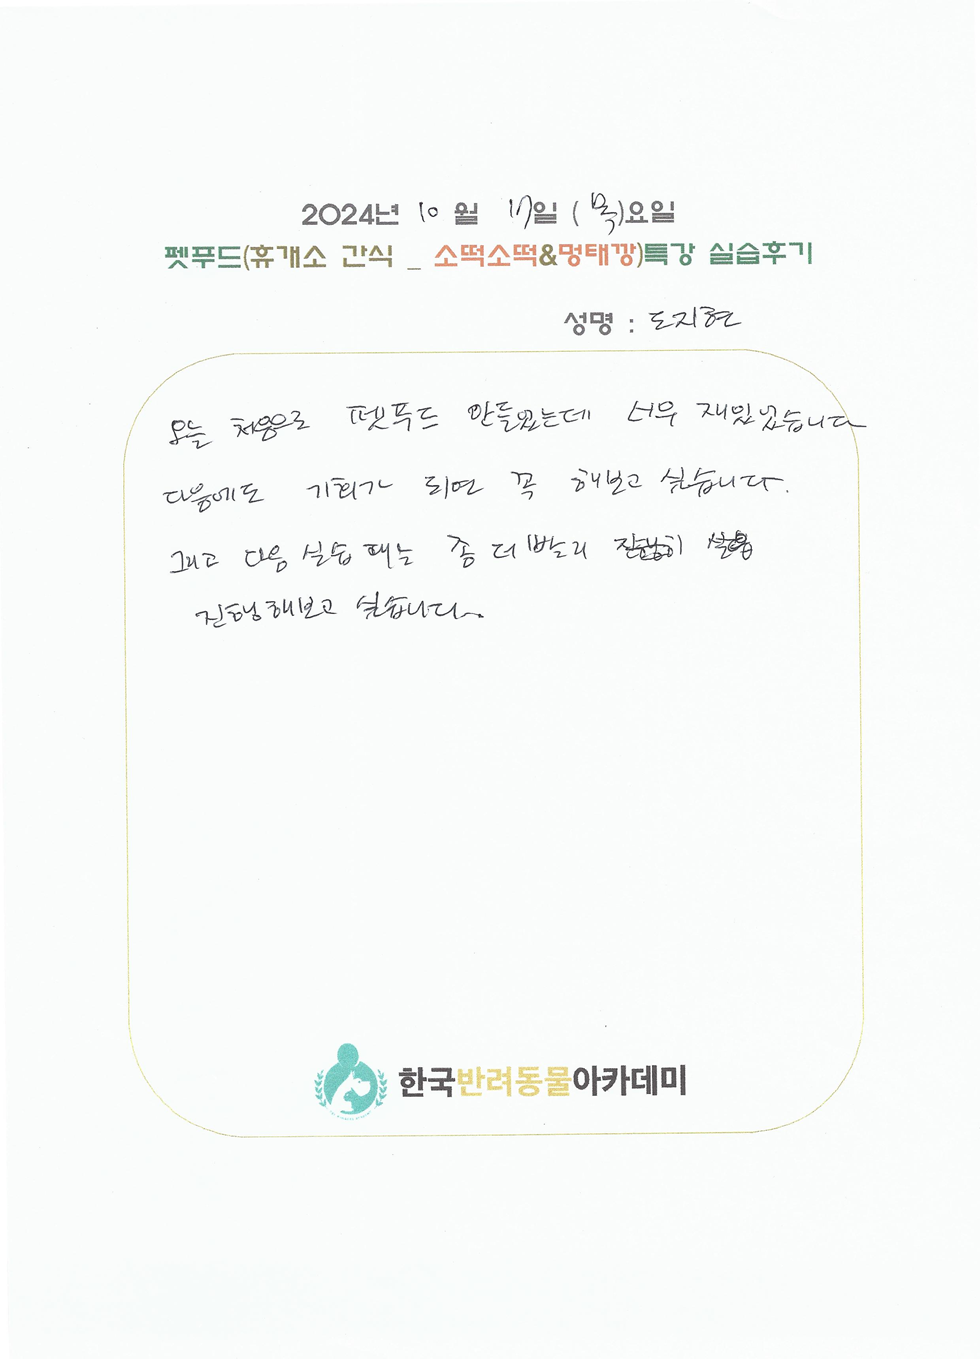 2024년 10월 17일 (목)요일
펫푸드(휴개소 간식 _ 소떡소떡&멍태깡)특강 실습후기
성명 : 도지현
오늘 처음으로 펫푸드 만들었는데 너무 재밌었습니다
다음에도 기회가 되면 꼭 해보고 싶습니다.
그리고 다음 실습 때는 좀 더 빨리
진행해보고 싶습니다.
한국반려동물아카데미